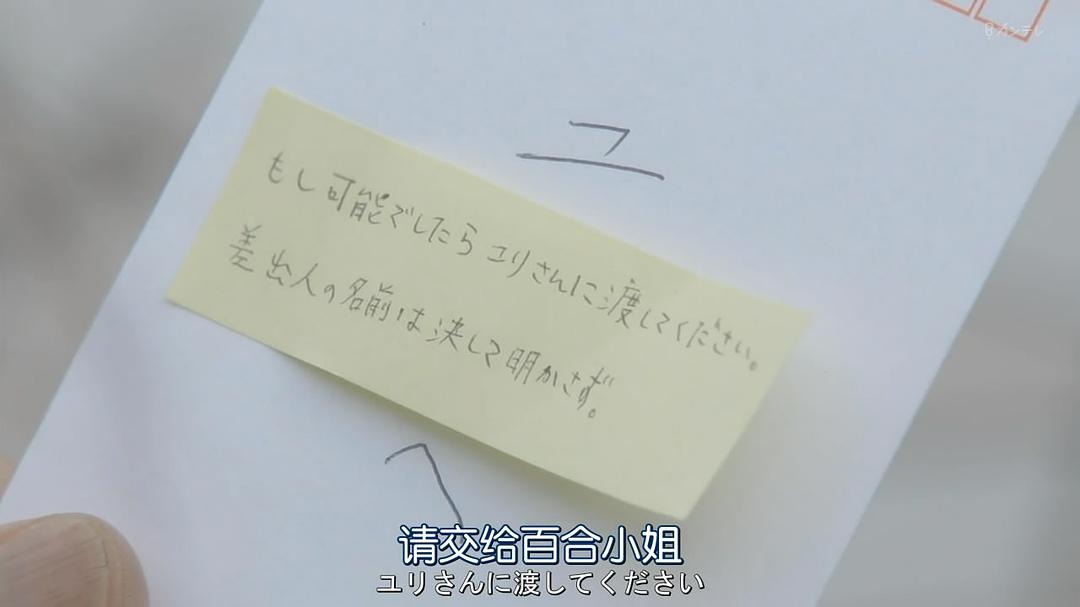 カンテレ
ユ
もし可能でしたらユリさんに渡してください。
差出人の名前は決して明かさず。
へ
请交给百合小姐
ユリさんに渡してください